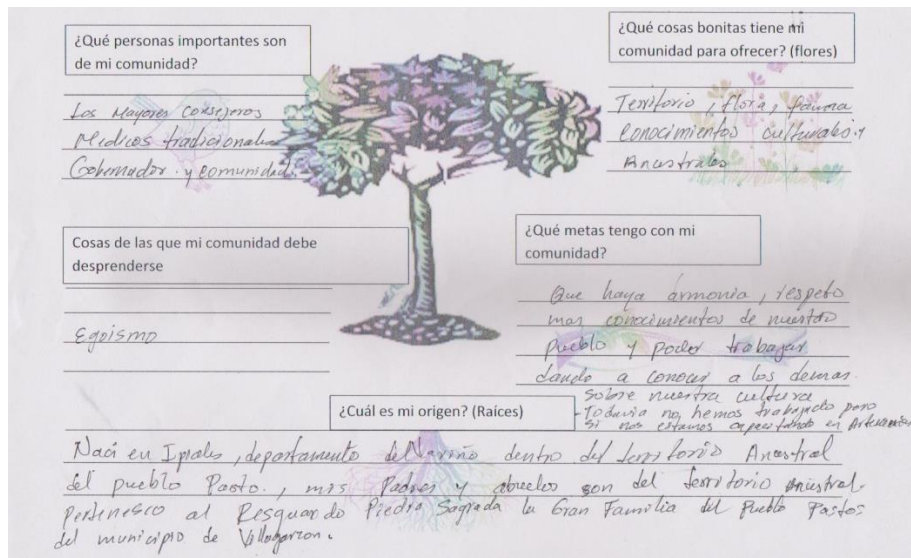 ¿Qué personas importantes son
de mi comunidad?
Los Mayores Consejeros
Medicos tradicionales
Gobernador y comunidad.
¿Qué cosas bonitas tiene mi
comunidad para ofrecer? (flores)
Territorio, flora, fauna
conocimientos culturales y
Ancestrales
Cosas de las que mi comunidad debe
desprenderse
Egoismo
¿Qué metas tengo con mi
comunidad?
Que haya armonia, respeto
mas conocimientos de nuestro
pueblo y poder trabajar
dando a conocer a los demas.
sobre nuestra cultura
- Todavia no hemos trabajado pero
si nos estamos capacitando en Artesanias
¿Cuál es mi origen? (Raíces)
Naci en Ipiales, departamento del Nariño dentro del territorio Ancestral
del pueblo Pasto., mis Padres y abuelos son del territorio ancestral.
Pertenesco al Resguardo Piedra Sagrada la Gran Familia del Pueblo Pastos
del municipio de Villagarzon.